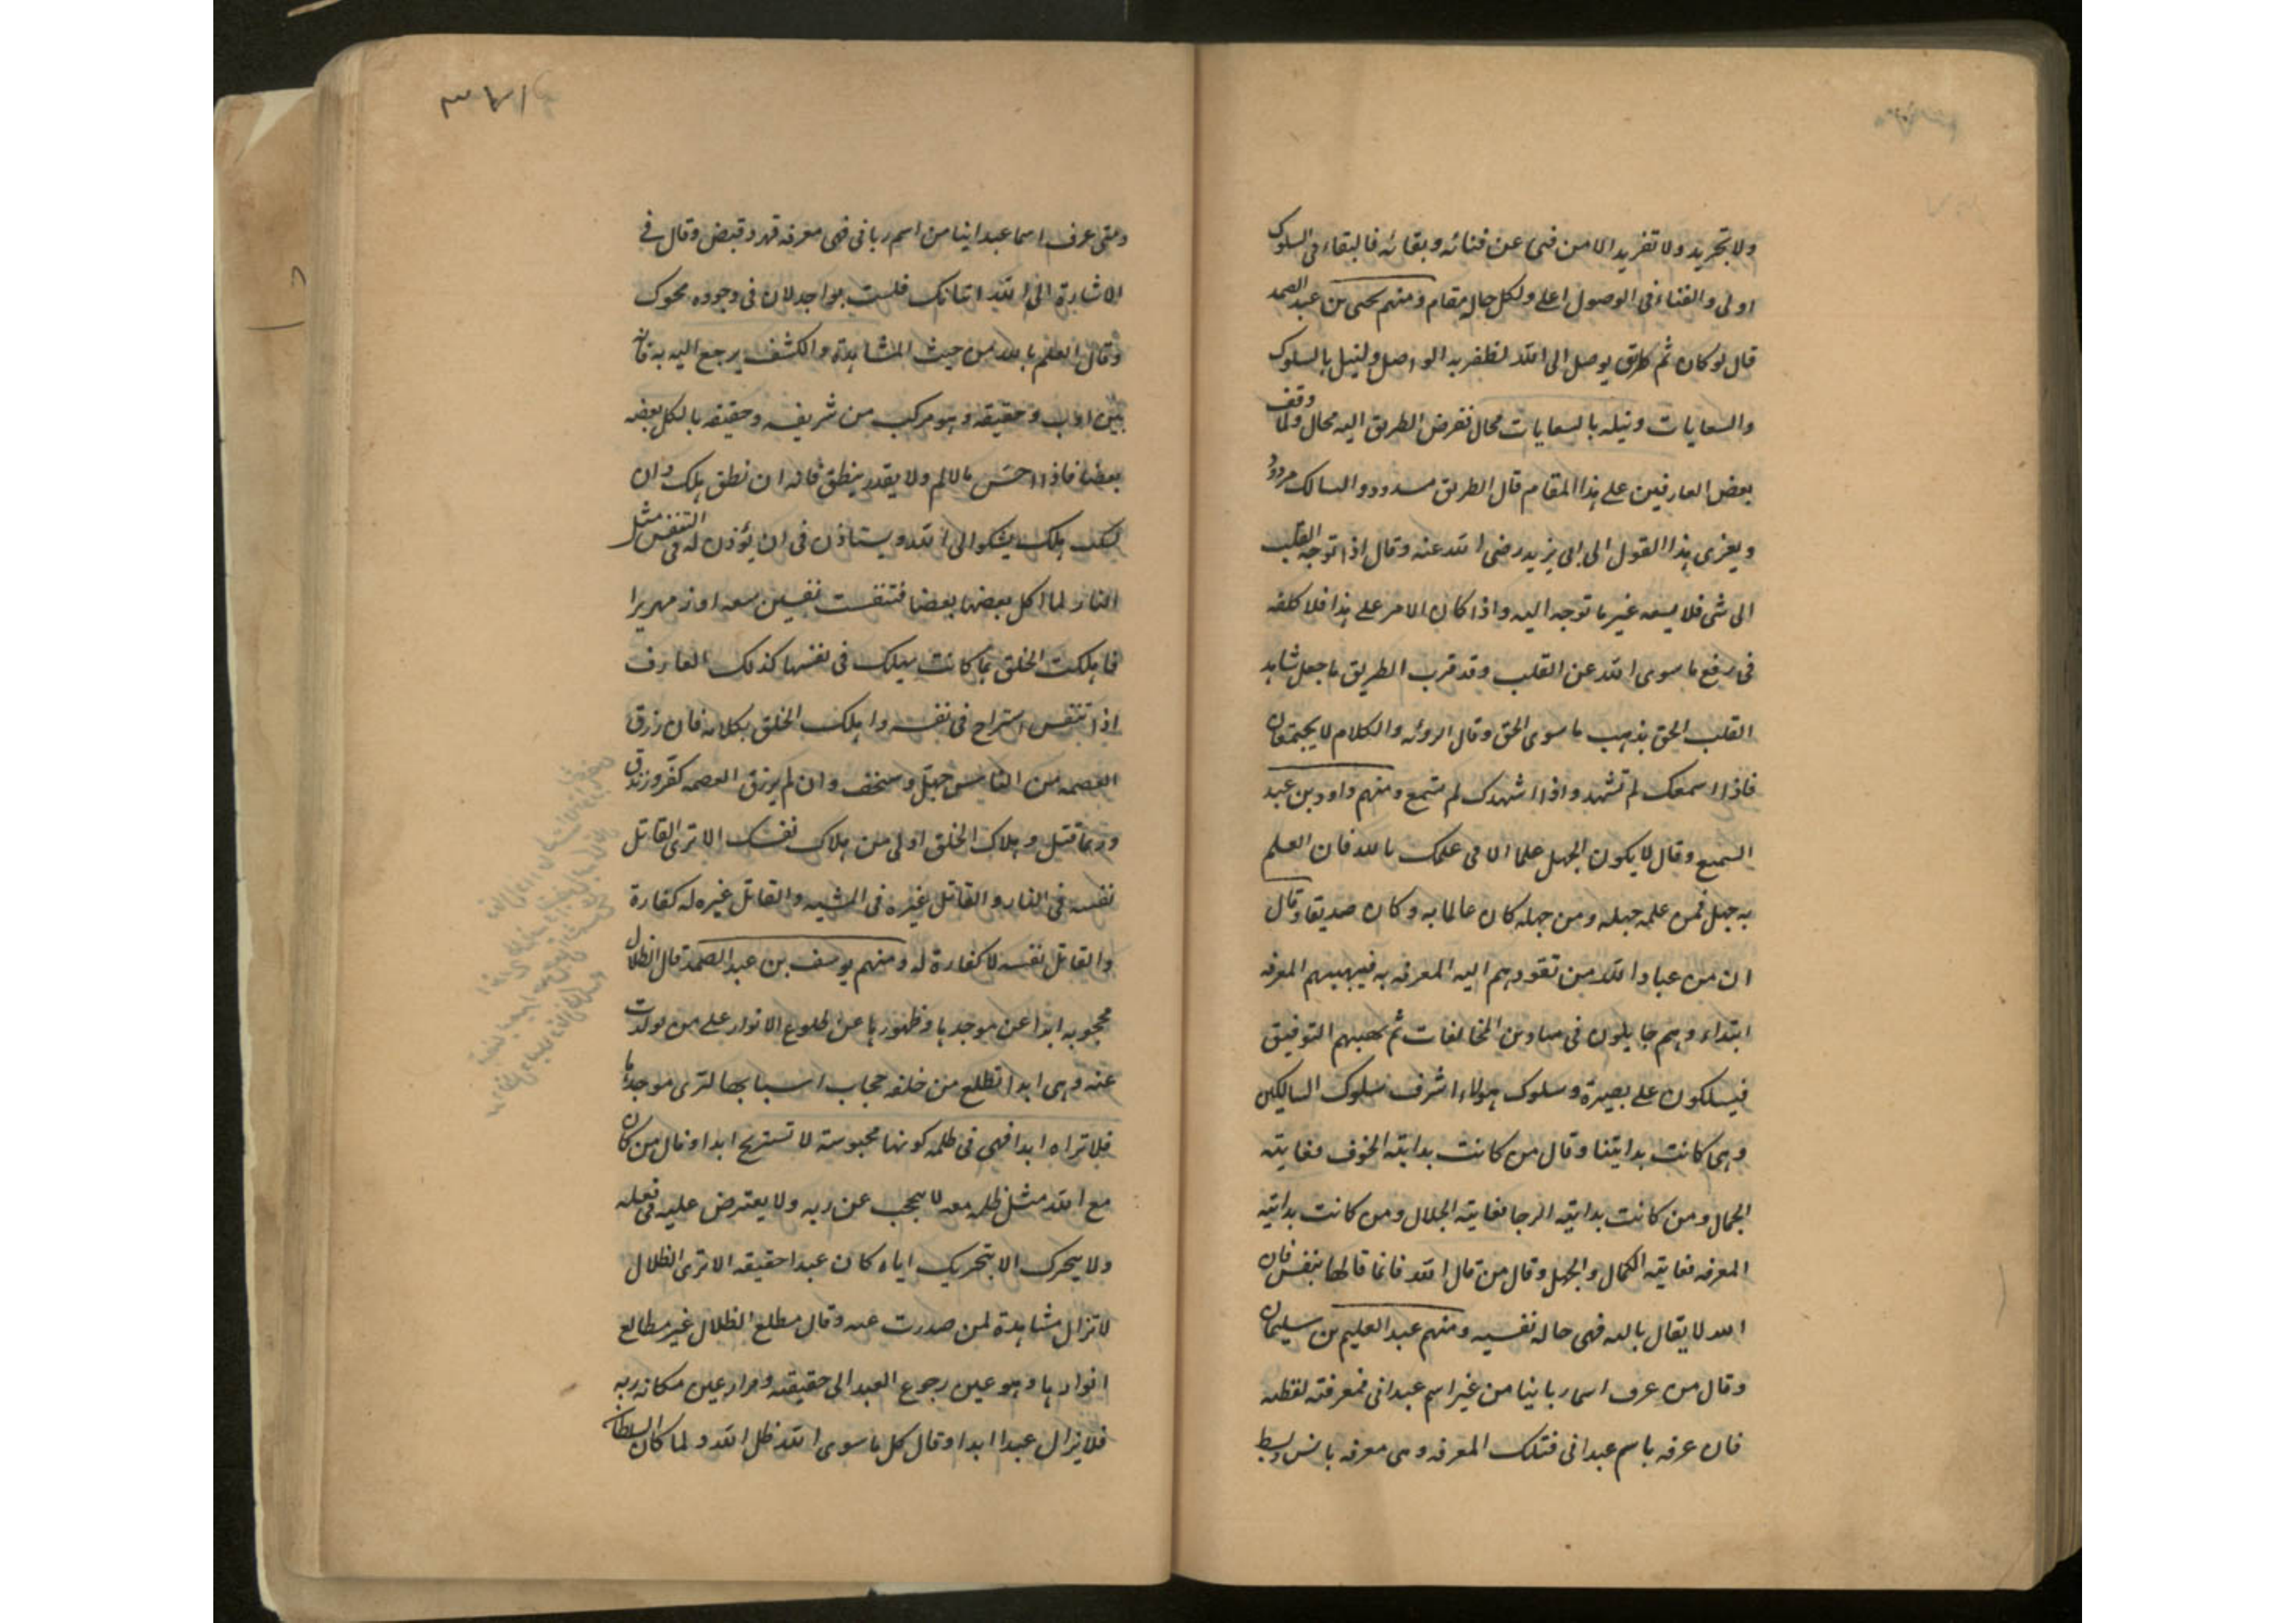 ولا تجريد ولا تفريد الا من فنى عن فنائه وبقائه فالبقاء فى السلوك
اولى والفناء فى الوصول اعلے ولكل حال مقام ومنهم يحيى بن عبد الصمد
قال لو كان ثم طريق يوصل الى الله لظفر به الواصل ولنيل بالسلوك
والسعايات ونيله بالسعايات محال نفرض الطريق اليه محال ولما وقف
بعض العارفين على هذا المقام قال الطريق مسدود والسالك مردود
ويعزى هذا القول الى ابى يزيد رضى الله عنه وقال اذا توجه القلب
الى شى فلا يسعه غير ما توجه اليه واذا كان الامر على هذا فلا كلفه
فى رفع ما سوى الله عن القلب وقد قرب الطريق ما جعل شاهد
القلب الحق يذهب ما سوى الحق وقال الروئه والكلام لا يجتمعان
فاذا اسمعك لم تشهد واذا اشهدك لم تسمع ومنهم داود بن عبد
السميع وقال لا يكون الجهل علما الا فى علمك بالله فان العلم
به جهل فمن علمه جهله ومن جهله كان عالما به وكان صديقا وقال
ان من عباد الله من تقودهم اليه المعرفه به فيهبهم المعرفه
ابتداء وهم جايلون فى ميادين المخالفات ثم يصحبهم التوفيق
فيسلكون على بصيرة وسلوك هولاء اشرف سلوك السالكين
وهى كانت بدايتنا وقال من كانت بدايته الخوف فغايته
الجمال ومن كانت بدايته الرجا فغايته الجلال ومن كانت بدايته
المعرفه فغايته الكمال والجهل وقال من قال الله فانما قالها بنفس فان
الله لا يقال بالله فهى حاله نفسيه ومنهم عبد العليم بن سليمان
وقال من عرف اسما ربانيا من غير اسم عبدانى فمعرفته لفظه
فان عرفه باسم عبدانى فتلك المعرفه وهى معرفه بانس وبسط
ومتى عرف اسما عبدانيا من اسم ربانى فهى معرفه قهر وقبض وقال فے
الاشارة الى الله اثباتك فلست بواجد لان فى وجوده محوك
وقال العلم بالله من حيث المشاهدة والكشف يرجع اليه به فانه
بين ادب وحقيقه وهو مركب من شريفه وحقيقه يا لكل بعضه
بعضا فاذا احس بالالم ولا يقدر ينطق فانه ان نطق هلك وان
سكت هلك يشكو الى الله ويستاذن فى ان يؤذن له فى التنفس مثل
النار لما اكل بعضها بعضا فتنفست نفسين سعيرا وزمهريرا
فاهلكت الخلق بما كانت تهلك فى نفسها كذلك العارف
اذا تنفس استراح فى نفسه واهلك الخلق بكلامه فان رزق
العصمه من الناس جهل وسخف وان لم يرزق العصمه كفر وزندق
وربما قتل وهلاك الخلق اولى من هلاك نفسك الا ترى القاتل
نفسه فى النار والقاتل غيره فى المشيه والقاتل غيره له كفارة
والقاتل نفسه لا كفارة له ومنهم يوسف بن عبد الصمد قال الظلال
محجوبه ابدا عن موجدها وظهورها عن طلوع الانوار على من تولدت
عنه وهى ابدا تطلع من خلف حجاب اسبابها لترى موجدها
فلا تراه ابدا فهى فى ظلمه كونها محبوسة لا تستريح ابدا وقال من كان
مع الله مثل ظله معه لا يحجب عن ربه ولا يعترض عليه فى فعله
ولا يتحرك الا بتحريك اياه كان عبدا حقيقه الا ترى الظلال
لا تزال مشاهدة لمن صدرت عنه وقال مطلع الظلال غير مطالع
انوارها وهو عين رجوع العبد الى حقيقته ومراد عين مكانه ربه
فلا يزال عبدا ابدا وقال كل ما سوى الله ظل الله ولما كان السلطان